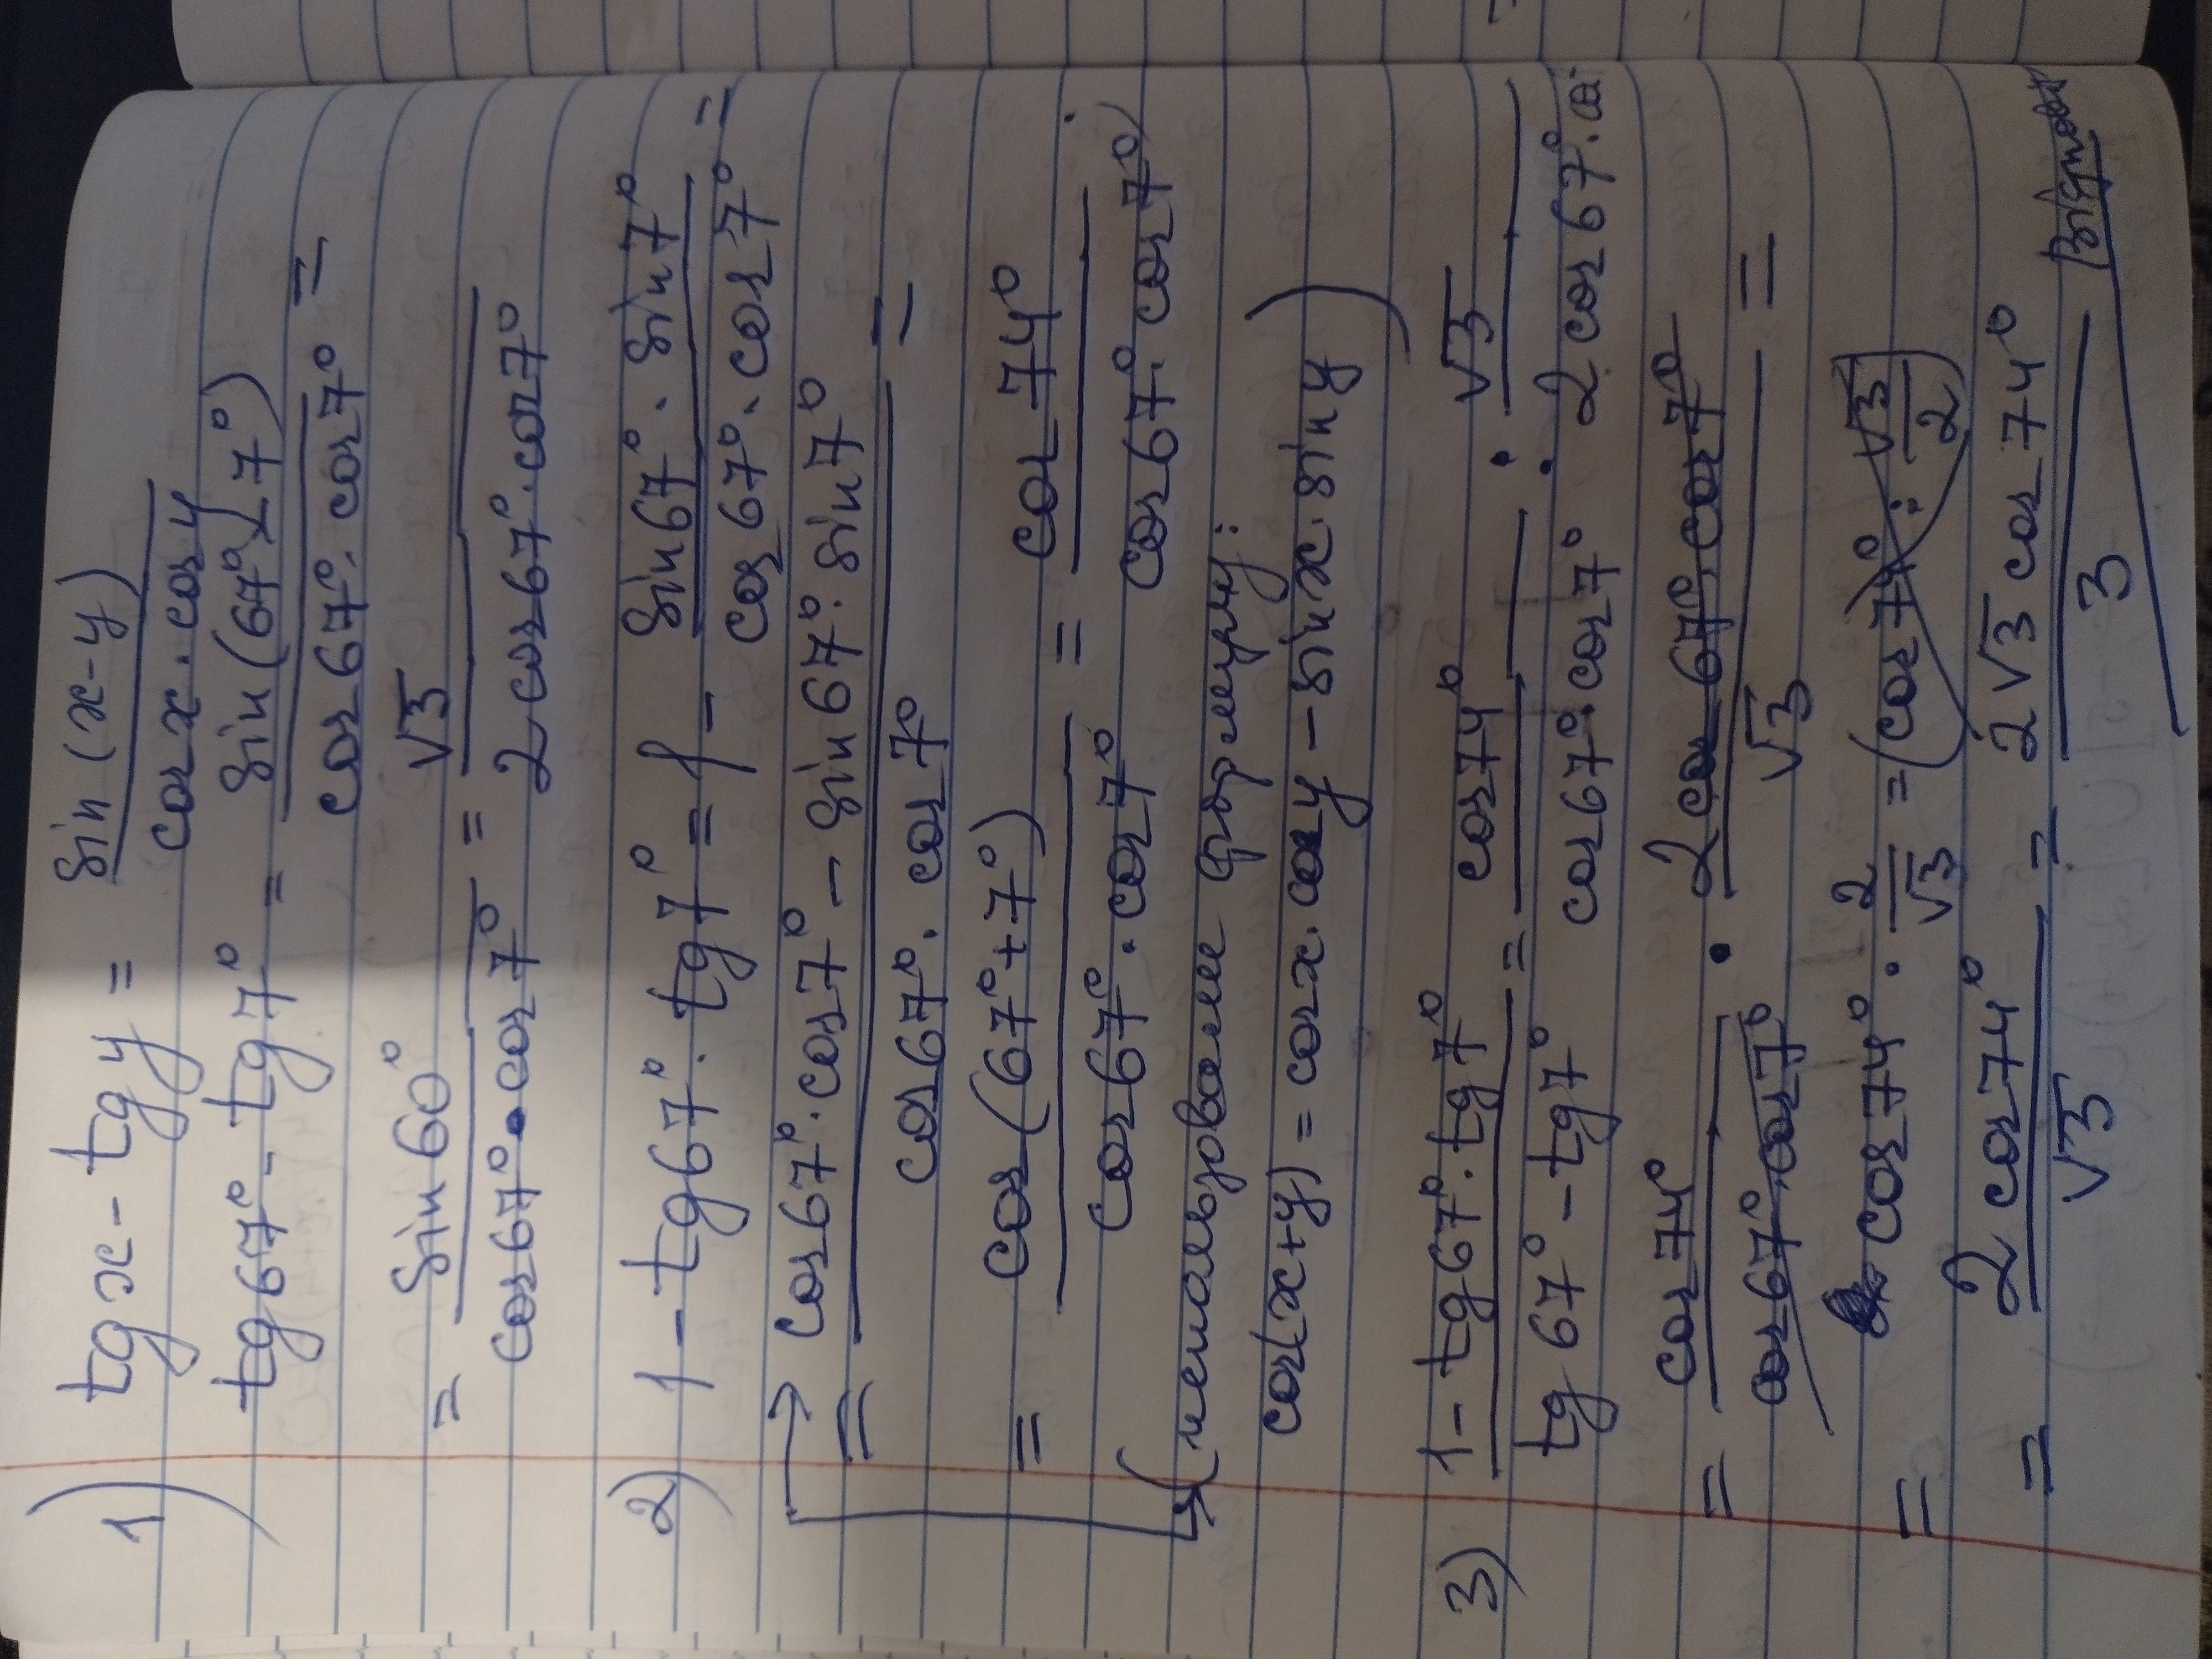 1) tg x - tg y = sin (x-y) / cos x · cos y
tg 67° - tg 7° = sin (67° - 7°) / cos 67° · cos 7° =
= sin 60° / cos 67° · cos 7° = √3 / 2 cos 67° · cos 7°
2) 1 - tg 67° · tg 7° = 1 - sin 67° · sin 7° / cos 67° · cos 7° =
= cos 67° · cos 7° - sin 67° · sin 7° / cos 67° · cos 7° =
= cos (67° + 7°) / cos 67° · cos 7° = cos 74° / cos 67° · cos 7°
(используем формулу:
cos (x+y) = cos x · cos y - sin x · sin y)
3) 1 - tg 67° · tg 7° / tg 67° - tg 7° = cos 74° / cos 67° · cos 7° : √3 / 2 cos 67° ·
= cos 74° / cos 67° · cos 7° · 2 cos 67° · cos 7° / √3 =
= cos 74° · 2 / √3 = (cos 74° : √3 / 2)
= 2 cos 74° / √3 = 2√3 cos 74° / 3